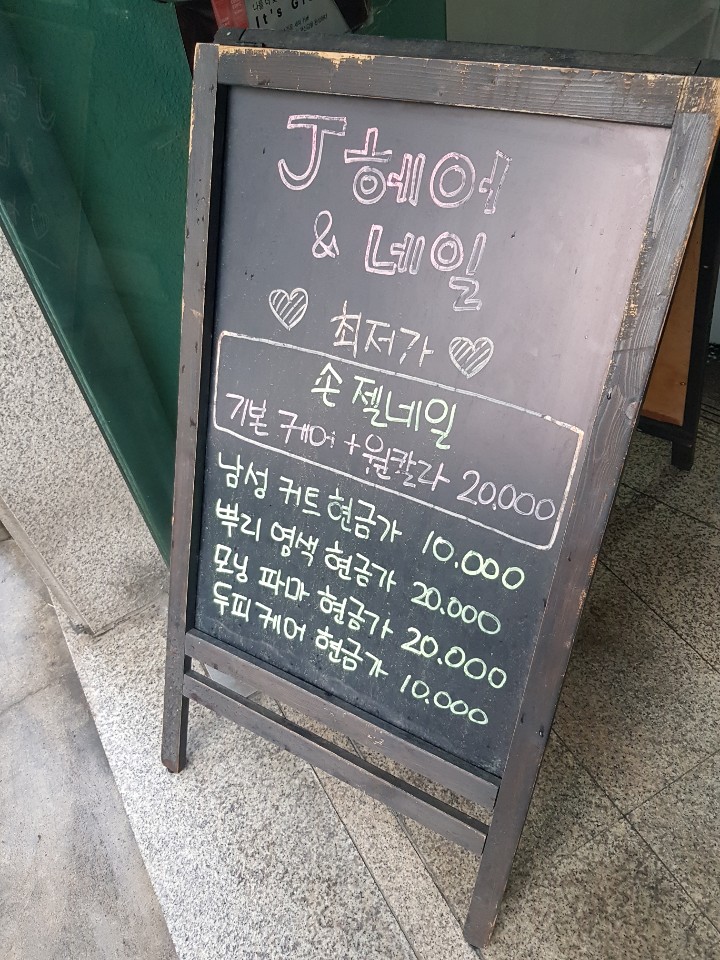 It's
J 헤어
& 네일
최저가
손 젤네일
기본 케어 + 원칼라 20.000
남성 커트 현금가 10.000
뿌리 염색 현금가 20.000
모닝 파마 현금가 20.000
두피 케어 현금가 10.000